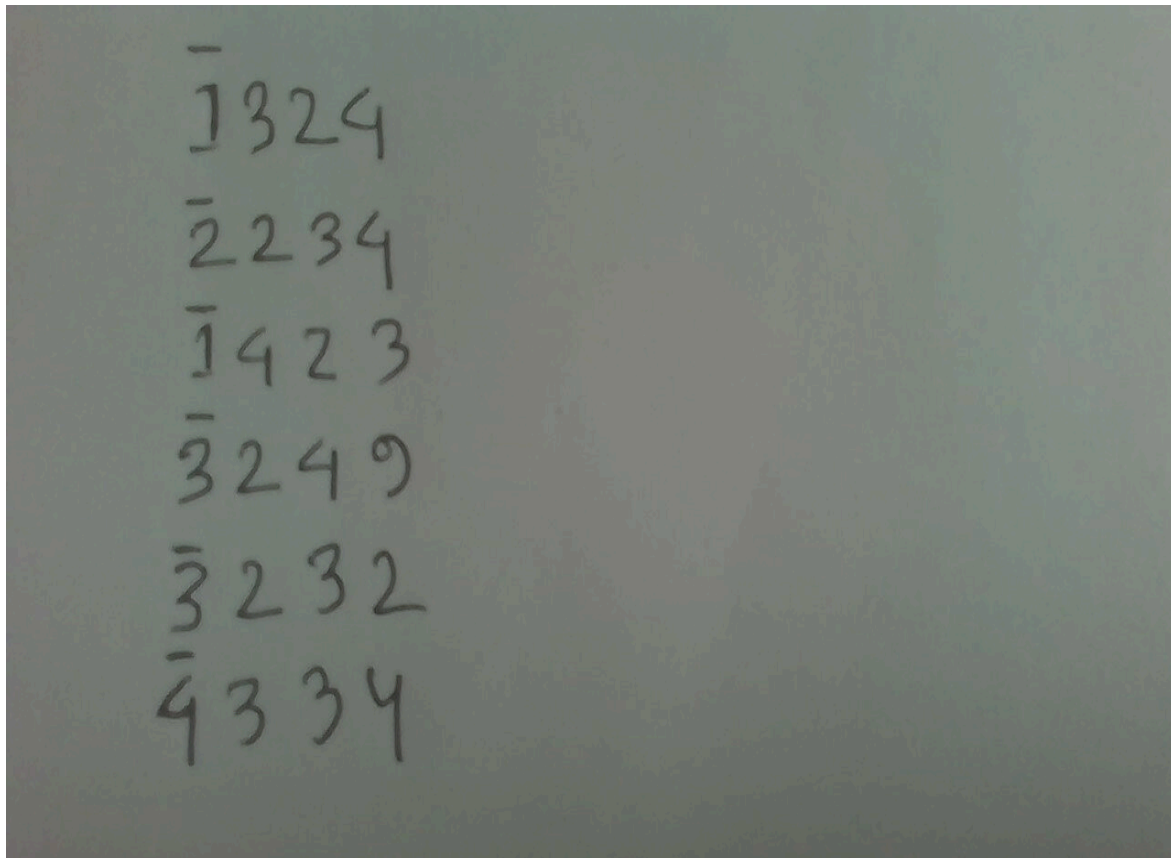 1̅324
2̅234
1̅423
3̅249
3̅232
4̅334